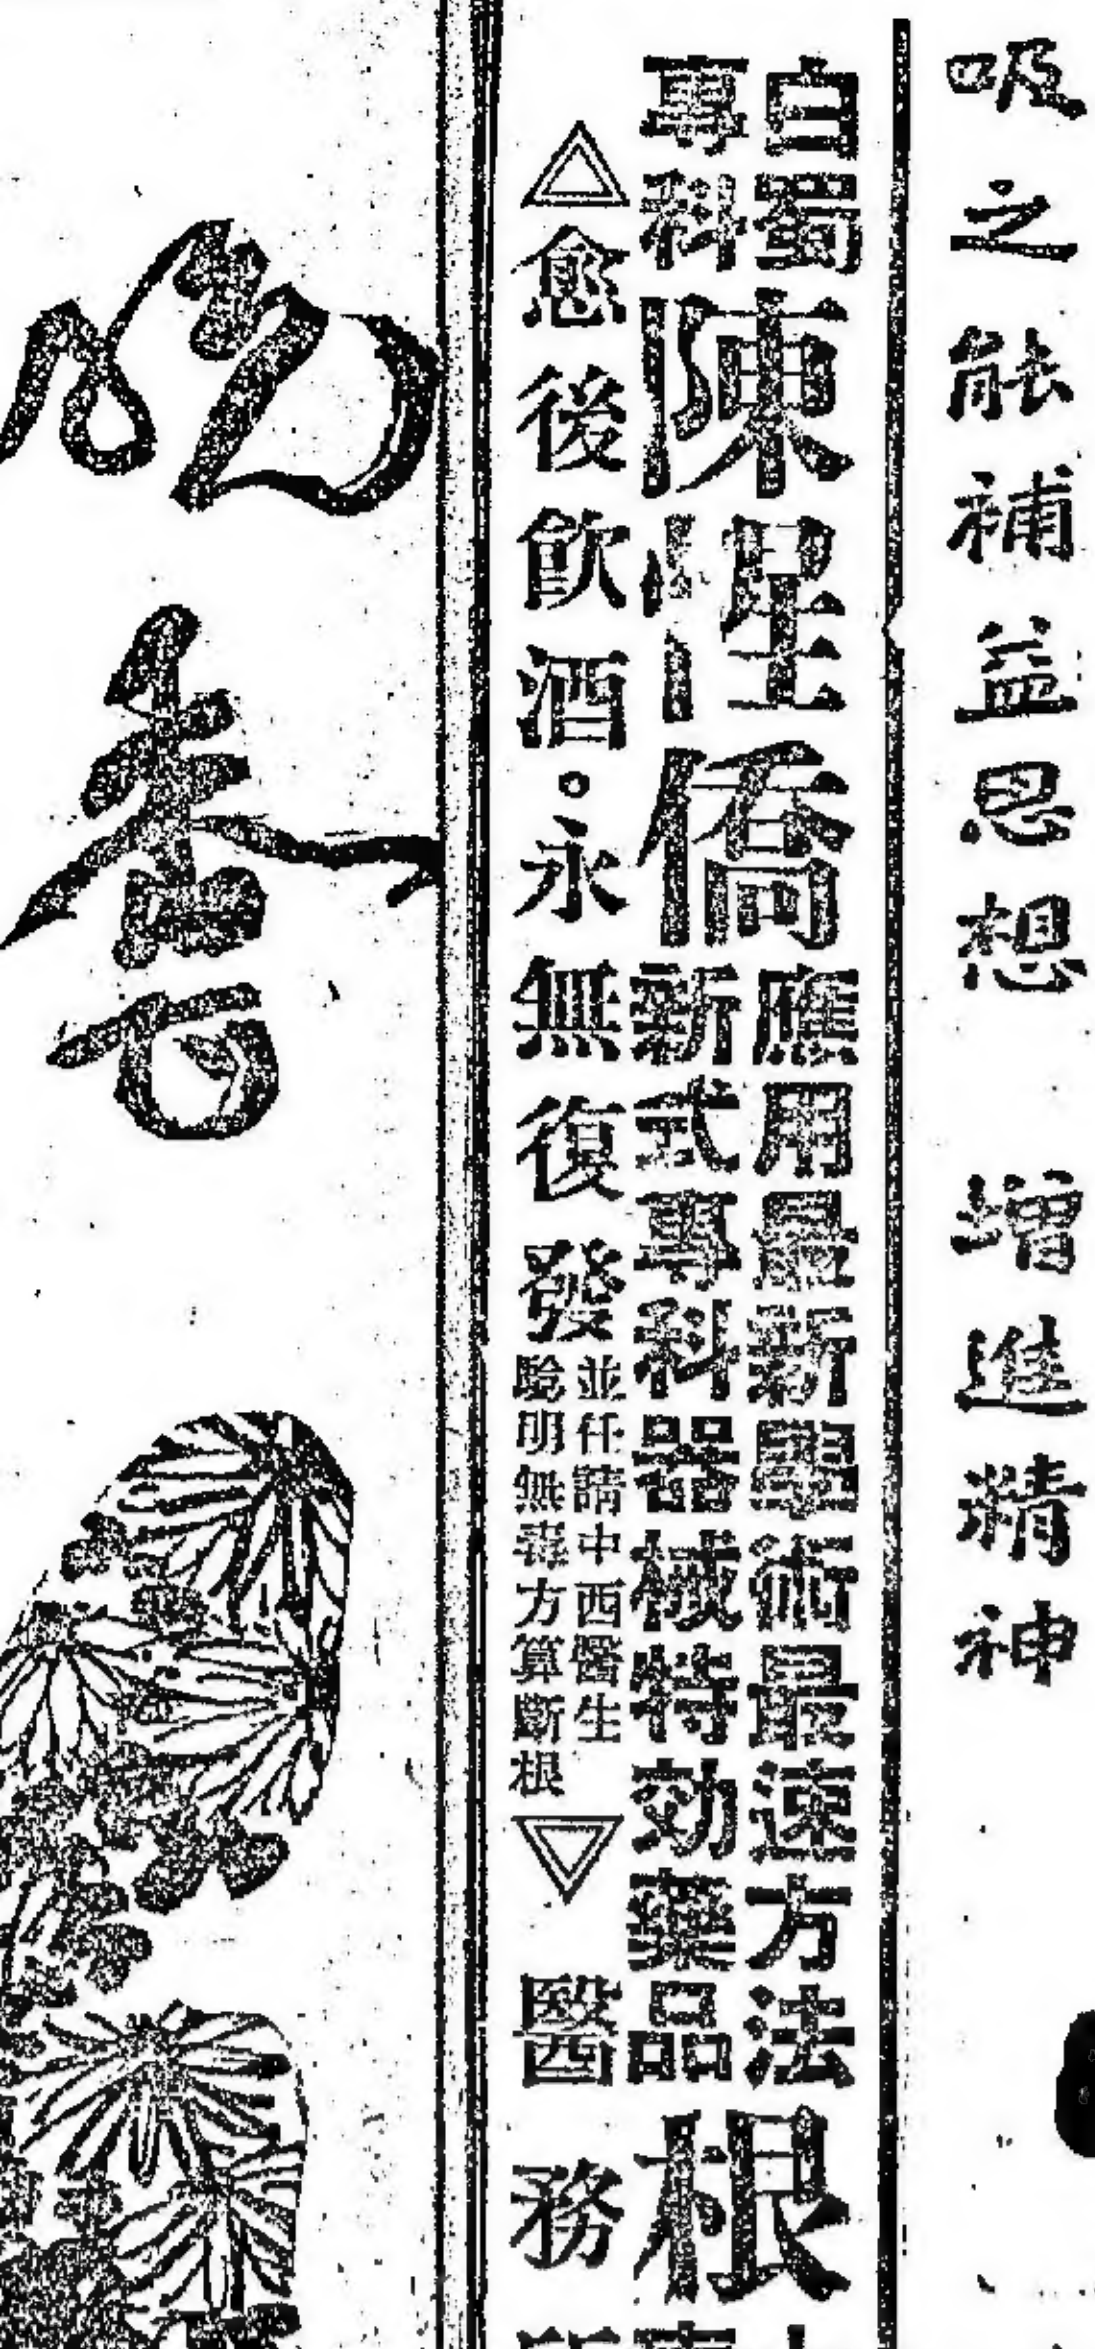 吸之能補益思想 增進精神
白濁
專科
陳惺僑
應用最新學術最速方法
新式專科器械特効藥品
根
△愈後飲酒。永無復發
並任請中西醫生
騐明無毒方算斷根
▽
醫務
香